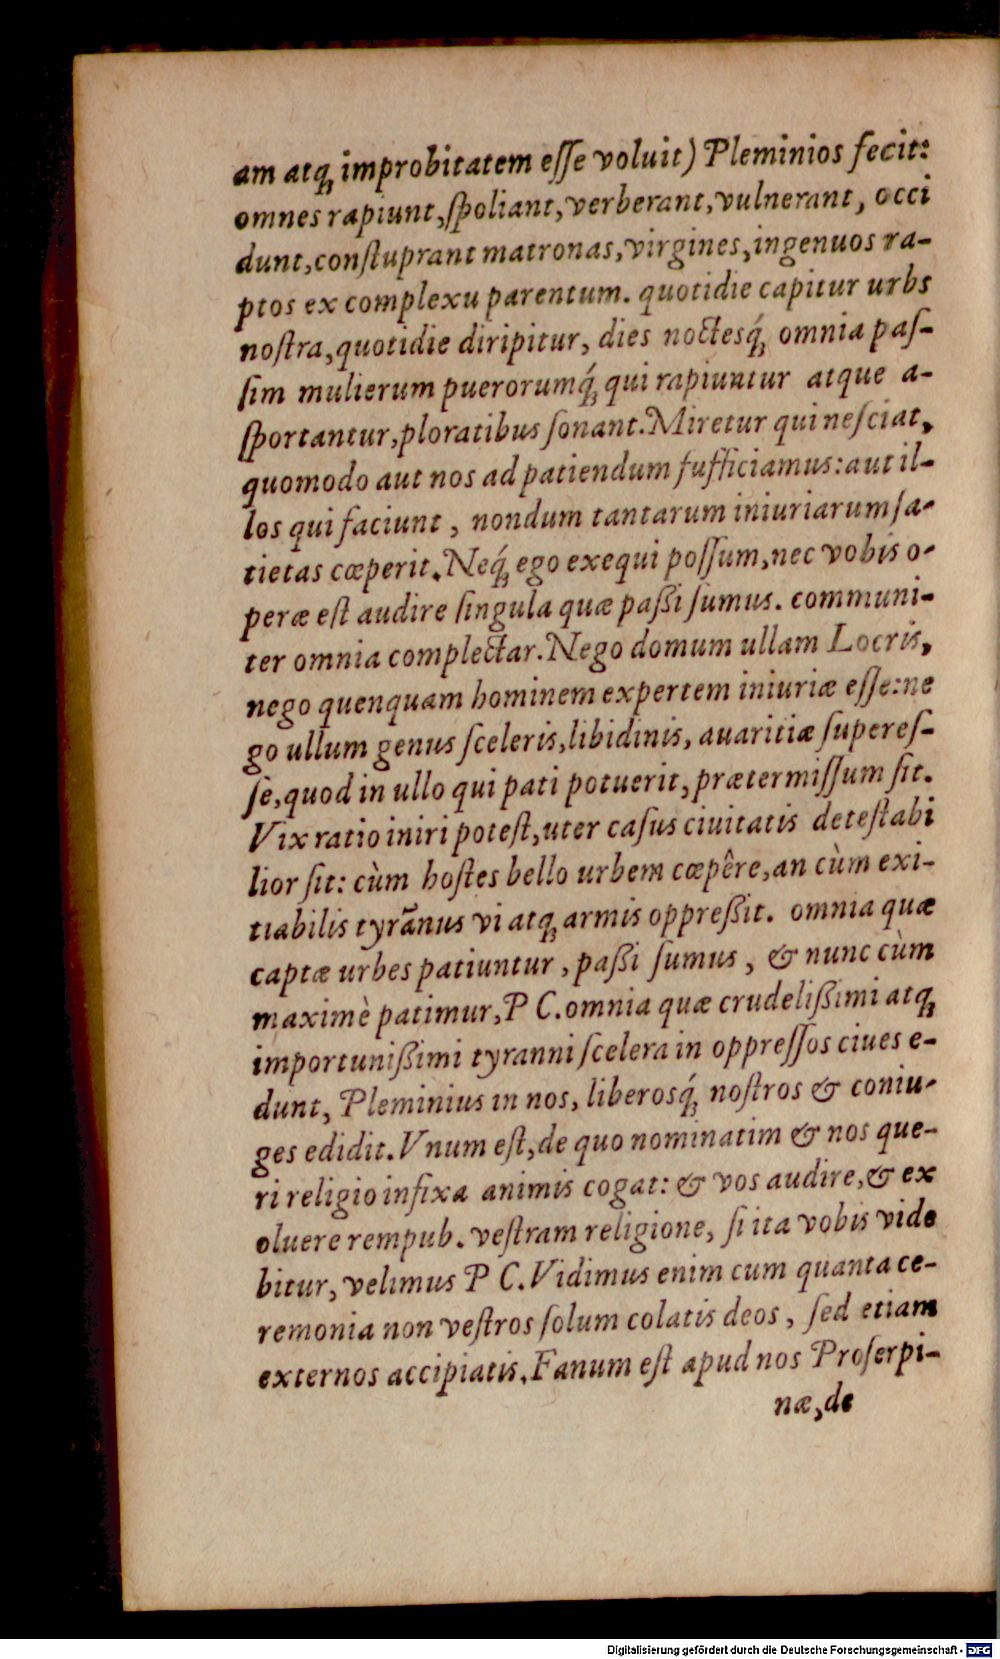 am atq; improbitatem eſſe voluit) Pleminios fecit:
omnes rapiunt, ſpoliant, verberant, vulnerant, occi
dunt, conſtuprant matronas, virgines, ingenuos ra-
ptos ex complexu parentum. quotidie capitur urbs
noſtra, quotidie diripitur, dies noctesq́; omnia paſ-
ſim mulierum puerorumq́; qui rapiuntur atque a-
ſportantur, ploratibus ſonant. Miretur qui neſciat,
quomodo aut nos ad patiendum ſufficiamus: aut il-
los qui faciunt, nondum tantarum iniuriarum ſa-
tietas cœperit. Neq́; ego exequi poſſum, nec vobis o-
peræ eſt audire ſingula quæ paßi ſumus. communi-
ter omnia complectar. Nego domum ullam Locris,
nego quenquam hominem expertem iniuriæ eſſe: ne
go ullum genus ſceleris, libidinis, auaritiæ ſupereſ-
ſe, quod in ullo qui pati potuerit, prætermiſſum ſit.
Vix ratio iniri poteſt, uter caſus ciuitatis deteſtabi
lior ſit: cùm hoſtes bello urbem cœpêre, an cùm exi-
tiabilis tyrãnus vi atq; armis oppreßit. omnia quæ
captæ urbes patiuntur, paßi ſumus, & nunc cùm
maximè patimur, P C. omnia quæ crudelißimi atq;
importunißimi tyranni ſcelera in oppreſſos ciues e-
dunt, Pleminius in nos, liberosq́; noſtros & coniu-
ges edidit. Vnum eſt, de quo nominatim & nos que-
ri religio infixa animis cogat: & vos audire, & ex
oluere rempub. veſtram religione, ſi ita vobis vide
bitur, velimus P C. Vidimus enim cum quanta ce-
remonia non veſtros ſolum colatis deos, ſed etiam
externos accipiatis. Fanum eſt apud nos Proſerpi-
næ, de
Digitalisierung gefördert durch die Deutsche Forschungsgemeinschaft - DFG